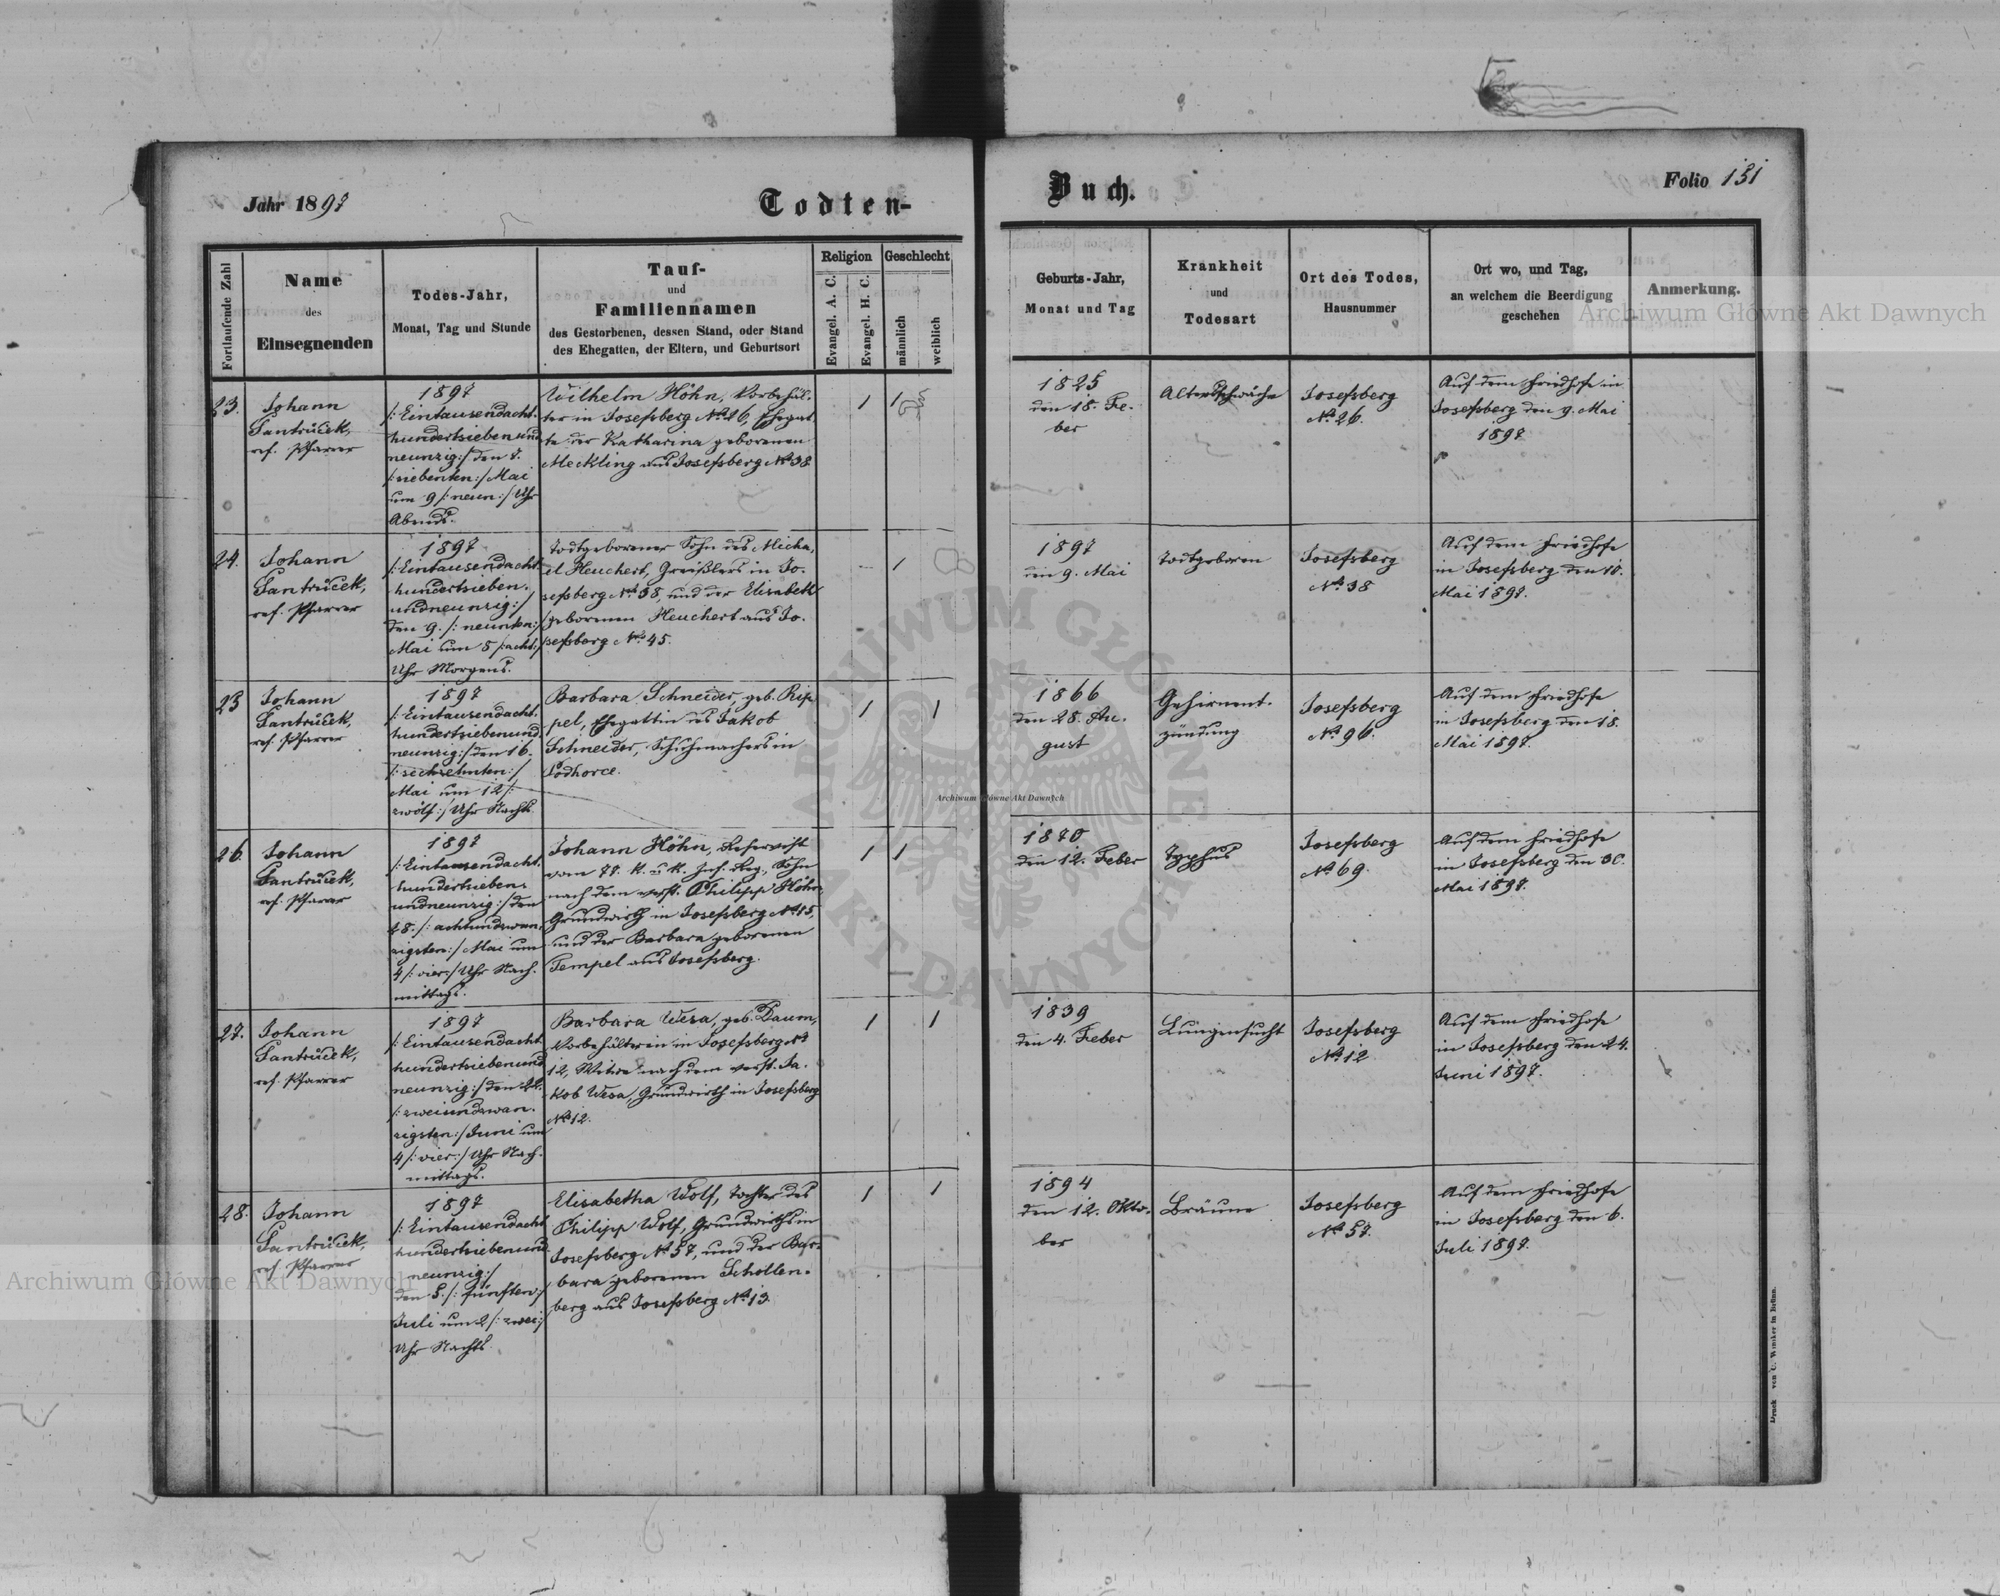 Jahr 1897
Todten-
Buch.
Folio 151
Fortlaufende Zahl
Name
des
Einsegnenden
Todes-Jahr,
Monat, Tag und Stunde
Tauf-
und
Familiennamen
des Gestorbenen, dessen Stand, oder Stand
des Ehegatten, der Eltern, und Geburtsort
Religion
Evangel. A. C.
Evangel. H. C.
Geschlecht
männlich
weiblich
Geburts-Jahr,
Monat und Tag
Krankheit
und
Todesart
Ort des Todes,
Hausnummer
Ort wo, und Tag,
an welchem die Beerdigung
geschehen
Anmerkung.
23.
Johann
Santrůček,
ref. Pfarrer
1897
/: Eintausendacht-
hundertsiebenund
neunzig :/ den 7.
/: siebenten :/ Mai
um 9 /: neun :/ Uhr
Abends.
Wilhelm Höhn, Vorbehäl-
ter in Josefsberg No 26, Ehegat-
te der Katharina geborenen
Meckling aus Josefsberg No 38
1
1
1825
den 18. Fe-
ber
Altersschwäche
Josefsberg
No 26.
Auf dem Friedhofe in
Josefsberg den 9. Mai
1897
24.
Johann
Santrůček,
ref. Pfarrer
1897
/: Eintausendacht-
hundertsieben-
undneunzig :/
den 9. /: neunten :/
Mai um 8 /: acht :/
Uhr Morgens.
Todtgeborener Sohn des Micha-
el Heuchert, Greißlers in Jo-
sefsberg No 38, und der Elisabeth
geborenen Heuchert aus Jo-
sefsberg No 45.
1
1897
den 9. Mai
Todtgeboren
Josefsberg
No 38
Auf dem Friedhofe
in Josefsberg den 10.
Mai 1897.
25
Johann
Santrůček,
ref. Pfarrer
1897
/: Eintausendacht-
hundertsiebenund-
neunzig :/ den 16.
/: sechzehnten :/
Mai um 12 /:
zwölf :/ Uhr Nachts.
Barbara Schneider, geb. Rip
pel, Ehegattin des Jakob
Schneider, Schuhmachers in
Podhorce.
1
1
1866
den 28. Au-
gust
Gehirnent-
zündung
Josefsberg
No 96.
Auf dem Friedhofe
in Josefsberg den 18.
Mai 1897.
26.
Johann
Santrůček,
ref. Pfarrer
1897
/: Eintausendacht-
hundertsieben-
undneunzig :/ den
28. /: achtundzwan-
zigsten :/ Mai um
4 /: vier :/ Uhr Nach-
mittags.
Johann Höhn, Reservist
vom 77. k. u. k. Inf. Reg., Sohn
nach dem verst. Philipp Höhn,
Grundwirth in Josefsberg No 15,
und der Barbara geborenen
Tempel aus Josefsberg.
1
1
1870
den 12. Feber
Typhus
Josefsberg
No 69.
Auf dem Friedhofe
in Josefsberg den 30.
Mai 1897.
27.
Johann
Santrůček,
ref. Pfarrer
1897
/: Eintausendacht
hundertsiebenund
neunzig :/ den 22.
/: zweiundzwan-
zigsten :/ Juni um
4 /: vier :/ Uhr Nach-
mittags.
Barbara Wesa, geb. Daum,
Vorbehälterin in Josefsberg No
12, Witwe nach dem verst. Ja-
kob Wesa, Grundwirth in Josefsberg
No 12.
1
1
1839
den 4. Feber
Lungensucht
Josefsberg
No 12
Auf dem Friedhofe
in Josefsberg den 24.
Juni 1897.
28.
Johann
Santrůček,
ref. Pfarrer
1897
/: Eintausendacht
hundertsiebenund
neunzig :/
den 5. /: fünften :/
Juli um 2 /: zwei :/
Uhr Nachts.
Elisabetha Wolf, Tochter des
Philipp Wolf, Grundwirths in
Josefsberg No 57, und der Bar-
bara geborenen Schollen-
berg aus Josefsberg No 13.
1
1
1894
den 12. Okto-
ber
Bräune
Josefsberg
No 57.
Auf dem Friedhofe
in Josefsberg den 6.
Juli 1897.
Druck von C. Winiker in Brünn.
Archiwum Główne Akt Dawnych
Archiwum Główne Akt Dawnych
Archiwum Główne Akt Dawnych
ARCHIWUM GŁÓWNE AKT DAWNYCH